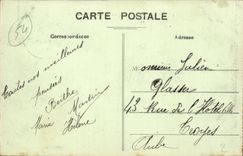 CARTE POSTALE
Correspondance
Adresse
54
toutes nos meilleures
pensées
Berthe
Marie
Hélène
Monsieur Julien
43 Rue de l'Hôtel de
Troyes
Aube